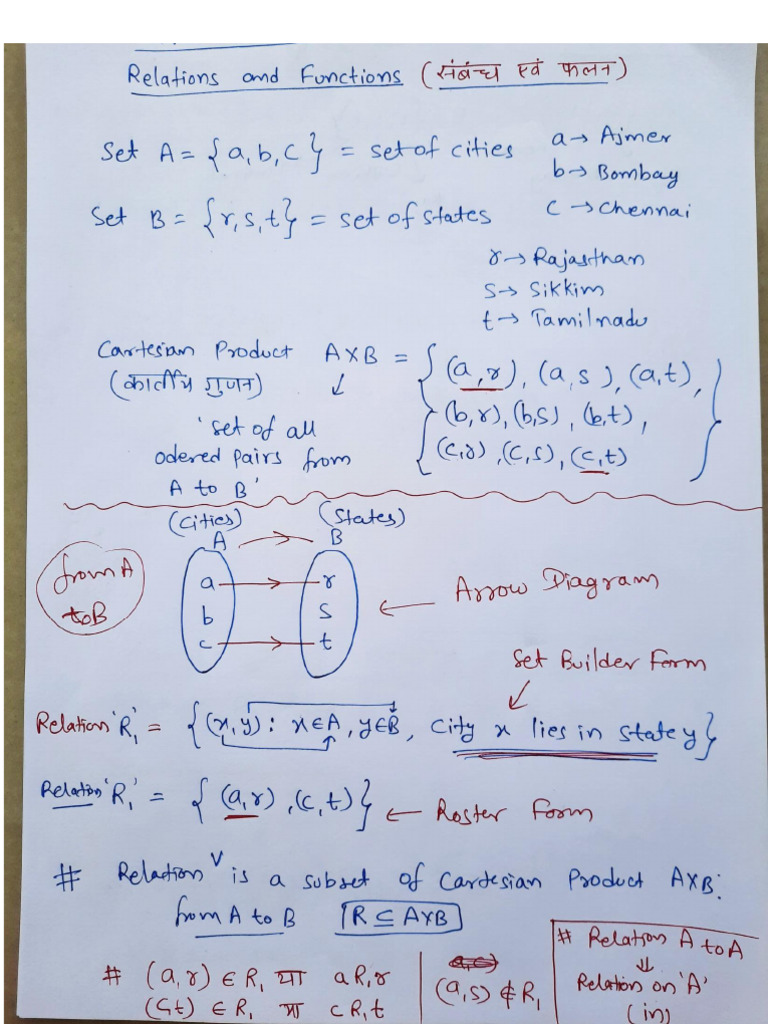 Relations and Functions (संबंध एवं फलन)
Set A = {a, b, c} = set of cities
a → Ajmer
b → Bombay
c → Chennai
Set B = {r, s, t} = set of states
r → Rajasthan
s → Sikkim
t → Tamilnadu
Cartesian Product A×B = {(a, r), (a, s), (a, t),
(कार्तीय गुणन) ↓ (b, r), (b, s), (b, t),
'set of all (c, r), (c, s), (c, t)}
odered pairs from
A to B'
(Cities) (States)
A → B
from A
to B
a → r
b s
c → t
← Arrow Diagram
Set Builder Form
Relation 'R₁' = {(x, y) : x ∈ A, y ∈ B, City x lies in state y}
Relation 'R₁' = {(a, r), (c, t)} ← Roster Form
# Relation ∨ is a subset of Cartesian Product A×B.
from A to B R ⊆ A×B
# (a, r) ∈ R₁ या a R₁ r
(c, t) ∈ R₁ या c R₁ t
(a, s) ∉ R₁
# Relation A to A
⇓
Relation on 'A'
(in)